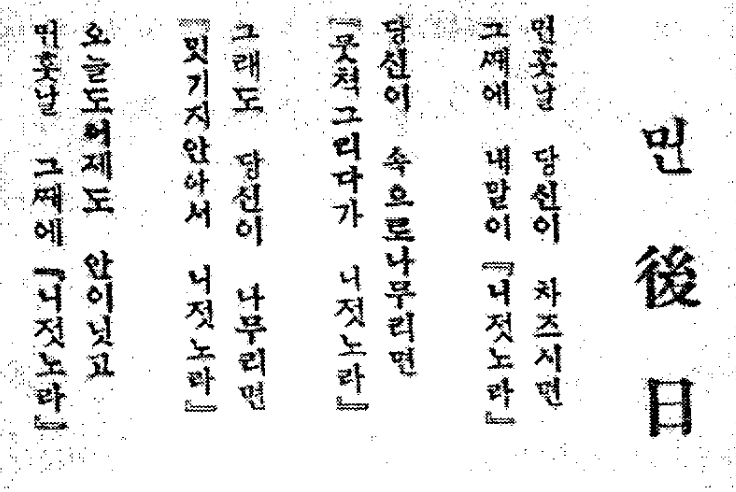 먼 後日
먼훗날 당신이 차즈시면
그ᄯᅢ에 내말이 『니젓노라』
당신이 속으로나무리면
『뭇척그리다가 니젓노라』
그래도 당신이 나무리면
『밋기지안아서 니젓노라』
오늘도어제도 안이닛고
먼훗날 그ᄯᅢ에 『니젓노라』